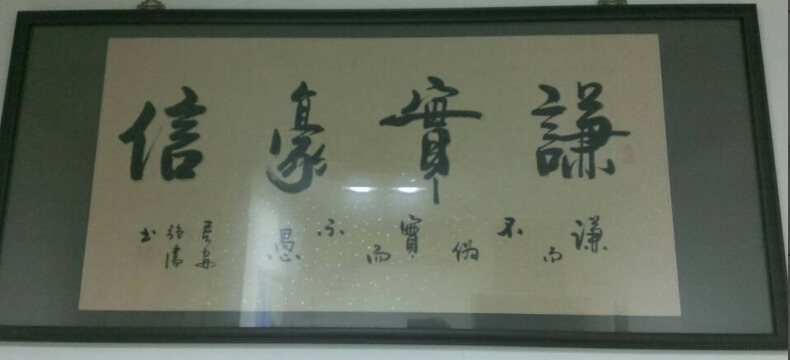 謙實豪信
謙而不偽實而不愚
長安
書